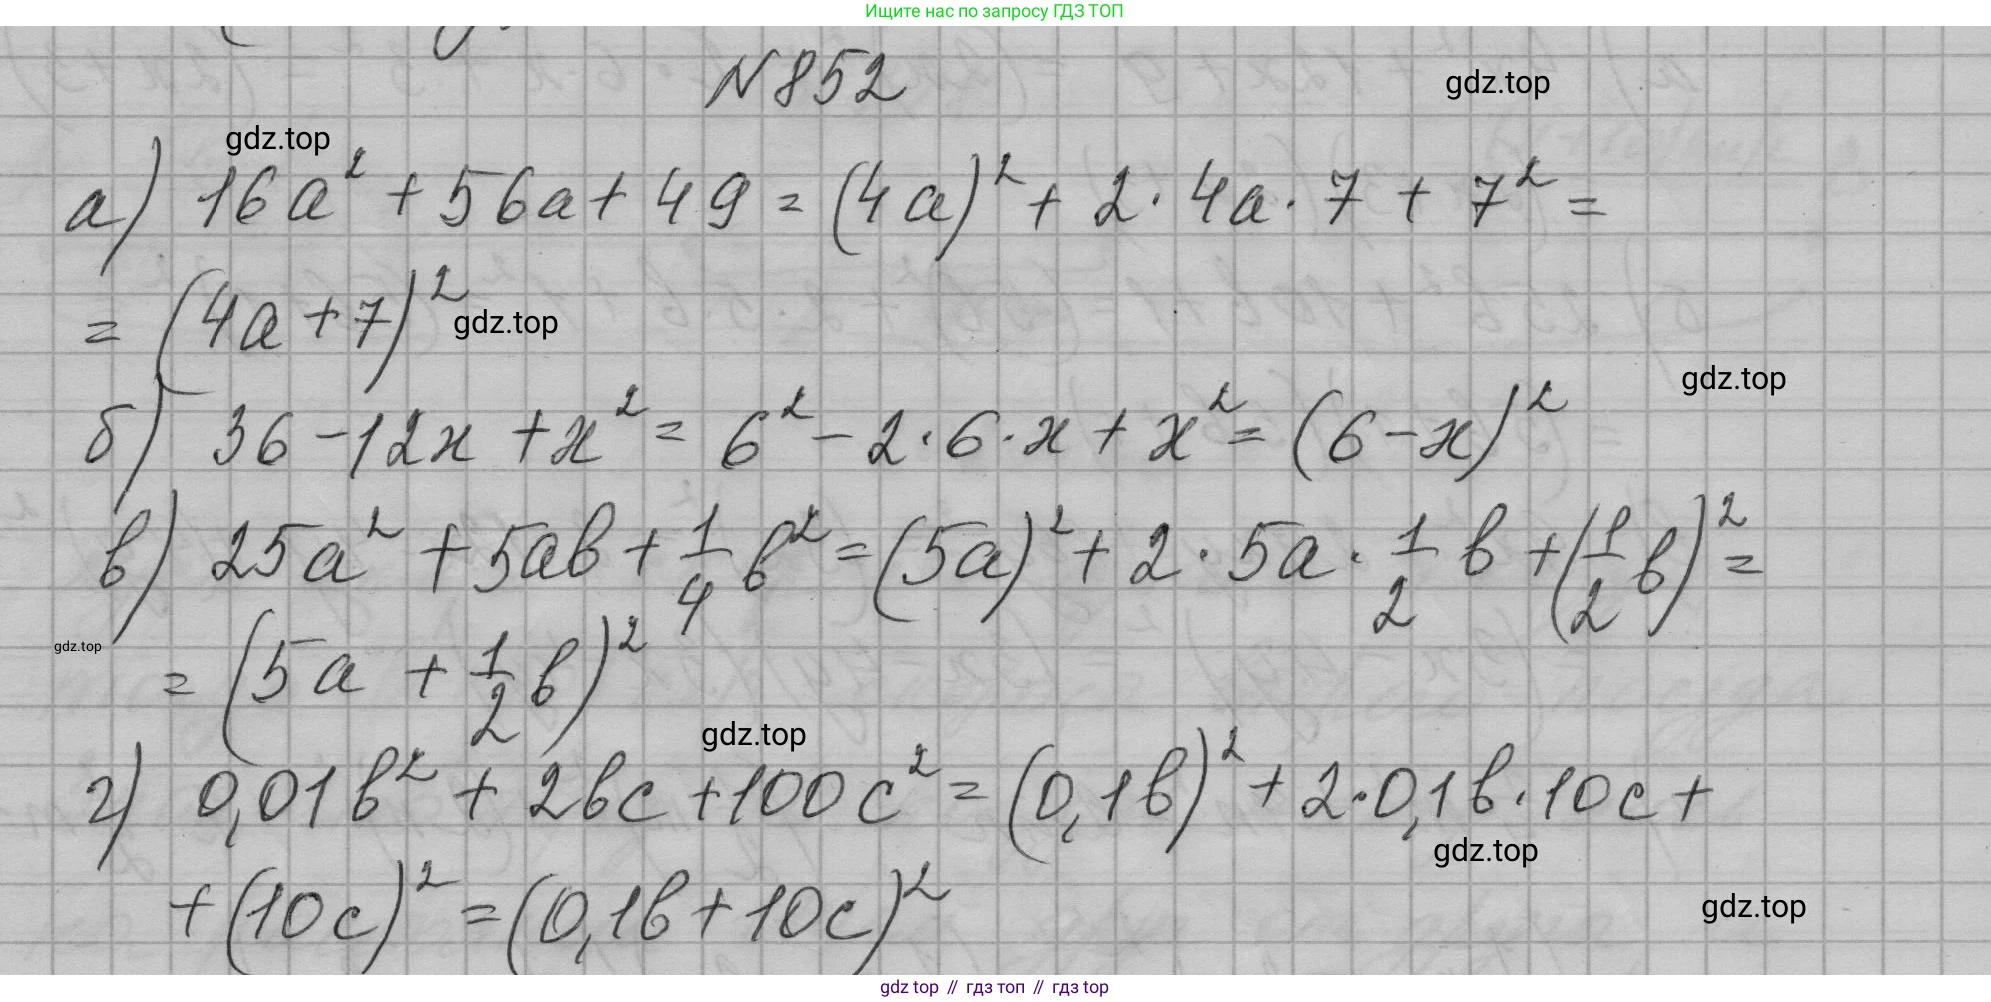 Ищите нас по запросу ГДЗ ТОП
N852
gdz.top
gdz.top
а) 16a² + 56a + 49 = (4a)² + 2·4a·7 + 7² =
= (4a+7)²
gdz.top
gdz.top
б) 36 - 12x + x² = 6² - 2·6·x + x² = (6-x)²
в) 25a² + 5ab + 1/4 b² = (5a)² + 2·5a·1/2 b + (1/2 b)² =
gdz.top
= (5a + 1/2 b)²
gdz.top
г) 0,01b² + 2bc + 100c² = (0,1b)² + 2·0,1b·10c +
gdz.top
+ (10c)² = (0,1b + 10c)²
gdz.top
gdz top // гдз топ // gdz top